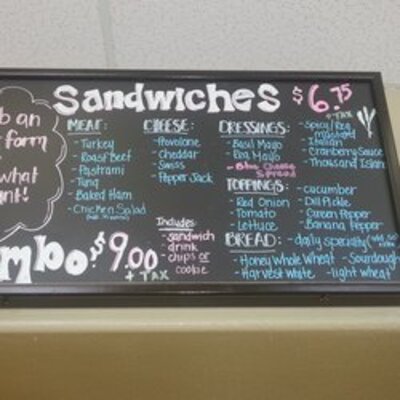 Sandwiches $6.75
+ TAX
b an
form
what
nt!
MEAT:
- Turkey
- Roast Beef
- Pastrami
- Tuna
- Baked Ham
- Chicken Salad
CHEESE:
- Provolone
- Cheddar
- Swiss
- Pepper Jack
DRESSINGS:
- Basil Mayo
- Reg Mayo
- Bleu Cheese
Spread
- Spicy/Reg
mustard
- Italian
- Cranberry Sauce
- Thousand Islan
TOPPINGS:
- Red Onion
- Tomato
- Lettuce
- cucumber
- Dill Pickle
- Green Pepper
- Banana Pepper
BREAD:
- daily specialty
- Sourdough
- Honey Whole Wheat
- Harvest White
- light wheat
mbo $9.00
+ TAX
Includes
- sandwich
- drink
- chips or
cookie